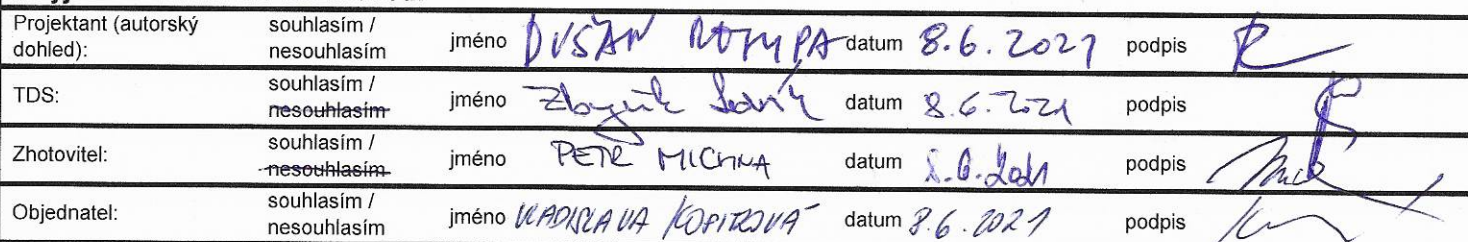 Projektant (autorský dohled): souhlasím / nesouhlasím jméno DUŠAN datum 8.6.2021 podpis
TDS: souhlasím / nesouhlasím jméno Zbyněk datum 8.6.2021 podpis
Zhotovitel: souhlasím / nesouhlasím jméno PETR MICHNA datum 8.6.2021 podpis
Objednatel: souhlasím / nesouhlasím jméno VLADISLAVA datum 8.6.2021 podpis